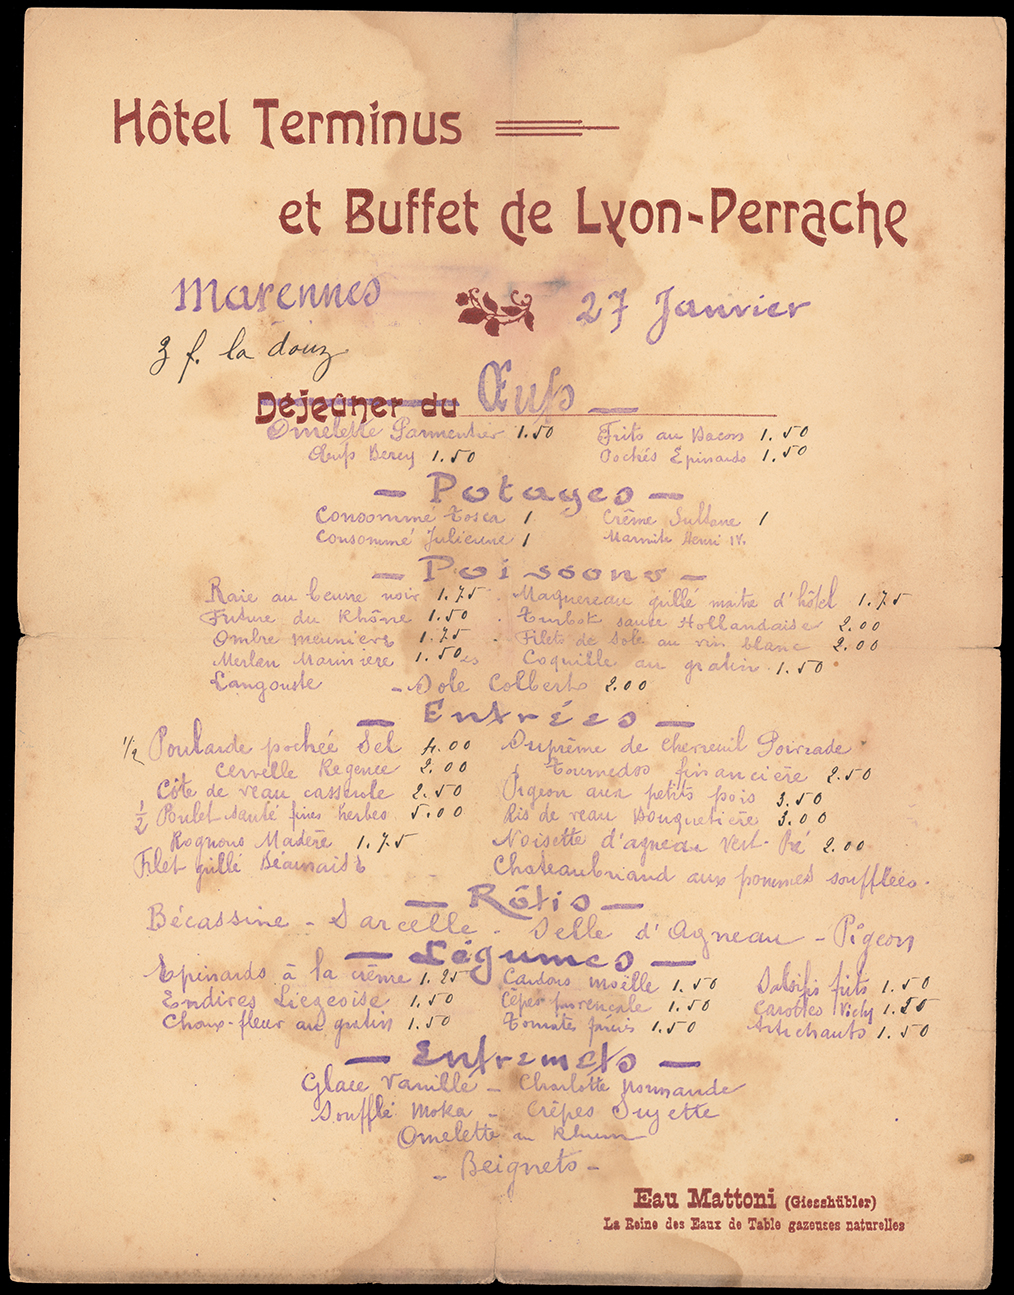 Hôtel Terminus
et Buffet de Lyon-Perrache
Marennes
27 Janvier
3 f. la douz
Déjeûner du Œufs
Omelette Parmentier 1.50 Frits au Bacon 1.50
Œufs Bercy 1.50 Pochés Epinards 1.50
- Potages -
Consommé Tosca 1 Crême Sultane 1
Consommé Julienne 1 Marmite Henri IV.
- Poissons -
Raie au beurre noir 1.75 - Maquereau grillé maitre d'hôtel 1.75
Friture du Rhône 1.50 - Turbot sauce Hollandaise 2.00
Ombre meuniere 1.75 - Filets de Sole au vin blanc 2.00
Merlan Mauniere 1.50 Coquille au gratin 1.50
Langouste - Sole Colbert 2.00
- Entrées -
1/2 Poularde pochée Sel 4.00 Suprème de chevreuil Poivrade
Cervelle Regence 2.00 Tournedos financière 2.50
Côte de veau casserole 2.50 Pigeon aux petits pois 3.50
1/2 Poulet sauté fines herbes 5.00 Ris de veau Bouquetière 3.00
Rognons Madère 1.75 Noisette d'agneau Vert-Pré 2.00
Filet grillé Béarnaise Chateaubriand aux pommes soufflées.
- Rôtis -
Bécassine - Sarcelle - Selle d'Agneau - Pigeon
- Légumes -
Epinards à la crême 1.25 Cardons moëlle 1.50 Salsifis frits 1.50
Endives Liegeoise 1.50 Cèpes provençale 1.50 Carottes Vichy 1.50
Choux-fleur au gratin 1.50 Tomates farcies 1.50 Artichauts 1.50
- Entremets -
Glace Vanille - Charlotte Normande
Soufflé Moka - Crêpes Suzette
Omelette au Rhum
- Beignets -
Eau Mattoni (Giesshübler)
La Reine des Eaux de Table gazeuses naturelles